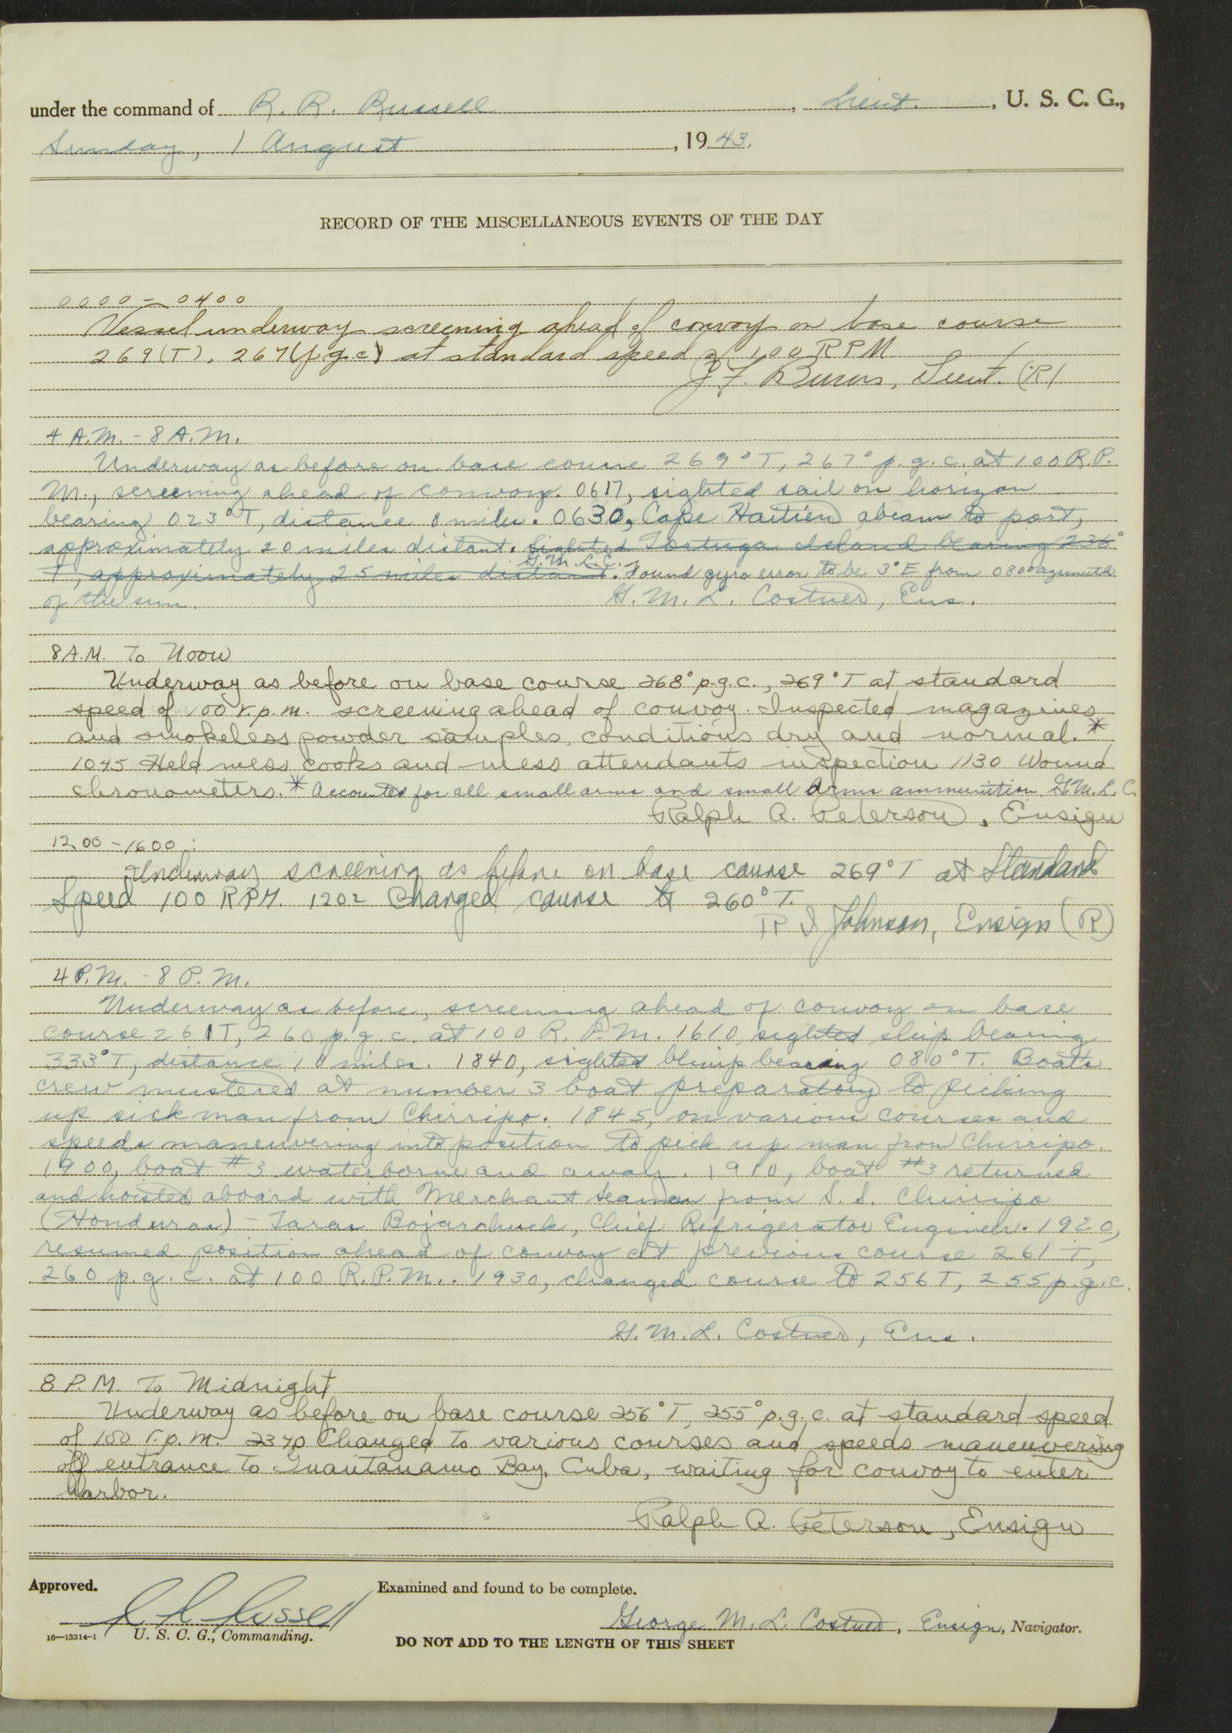 under the command of R. R. Russell, Lieut., U. S. C. G.,
Sunday, 1 August, 1943.
RECORD OF THE MISCELLANEOUS EVENTS OF THE DAY
0000 - 0400
Vessel underway screening ahead of convoy on base course
269(T), 267(p.g.c) at standard speed of 100 RPM
J. F. Burns, Lieut. (R)
4 A.M. - 8 A.M.
Underway as before on base course 269°T, 267° p.g.c. at 100 R.P.
M., screening ahead of convoy. 0617, sighted sail on horizon
bearing 023°T, distance 8 miles. 0630, Cape Haitien abeam to port,
approximately 20 miles distant. Sighted Tortuga Island bearing 236°
G.M.L.C.
T, approximately 25 miles distant. Found gyro error to be 3°E from 080° azimuth
of the sun. G. M. L. Costner, Ens.
8 A.M. To Noon
Underway as before on base course 268° p.g.c., 269°T at standard
speed of 100 r.p.m. screening ahead of convoy. Inspected magazines
and smokeless powder samples, conditions dry and normal.*
1045 Held mess cooks and mess attendants inspection 1130 Wound
chronometers. * Accounted for all small arms and small arms ammunition G.M.L.C.
Ralph A. Peterson, Ensign
1200 - 1600:
Underway screening as before on base course 269°T at Standard
Speed 100 RPM. 1202 Changed course to 260°T.
R I Johnson, Ensign (R)
4 P.M. - 8 P.M.
Underway as before, screening ahead of convoy on base
course 261T, 260 p.g.c. at 100 R.P.M. 1610, sighted ship bearing
333°T, distance 10 miles. 1840, sighted blimp bearing 080°T. Boats
crew mustered at number 3 boat preparatory to picking
up sick man from Chirripo. 1845, on various courses and
speeds maneuvering into position to pick up man from Chirripo.
1900, boat #3 waterborne and away. 1910, boat #3 returned
and hoisted aboard with Merchant Seaman from S. S. Chirripo
(Honduras) - Taras Bojarchuck, Chief Refrigerator Engineer. 1920,
resumed position ahead of convoy at previous course 261 T,
260 p.g.c. at 100 R.P.M.. 1930, changed course to 256T, 255 p.g.c.
G. M. L. Costner, Ens.
8 P.M. To Midnight
Underway as before on base course 256°T, 255° p.g.c. at standard speed
of 100 r.p.m. 2340 Changed to various courses and speeds maneuvering
off entrance to Guantanamo Bay, Cuba, waiting for convoy to enter
harbor.
Ralph A. Peterson, Ensign
Approved. Examined and found to be complete.
R R Russell George M. L. Costner, Ensign, Navigator.
16—13314-1 U. S. C. G., Commanding.
DO NOT ADD TO THE LENGTH OF THIS SHEET